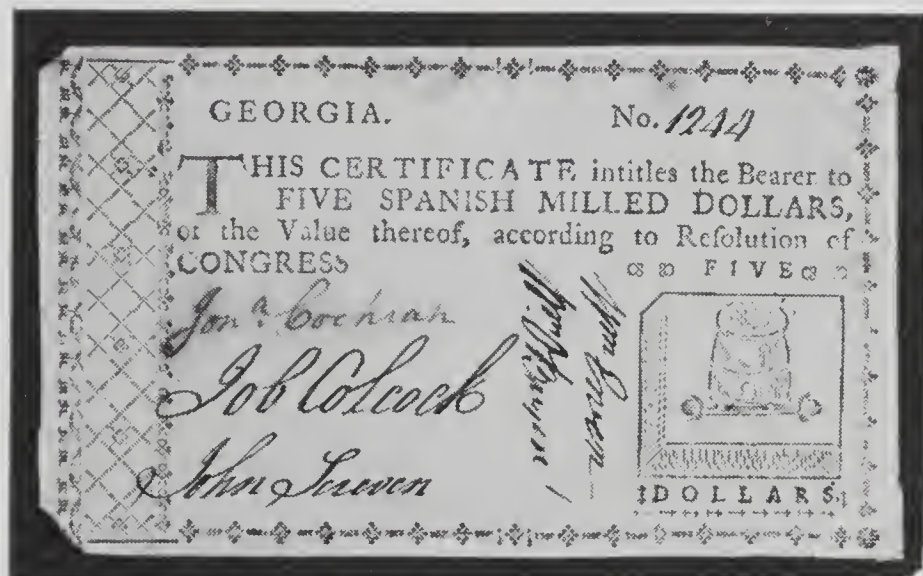 GEORGIA. No. 1244
THIS CERTIFICATE intitles the Bearer to
FIVE SPANISH MILLED DOLLARS,
or the Value thereof, according to Reſolution of
CONGRESS
FIVE
Jonª Cochran
Job Colcock
John Screven
DOLLARS